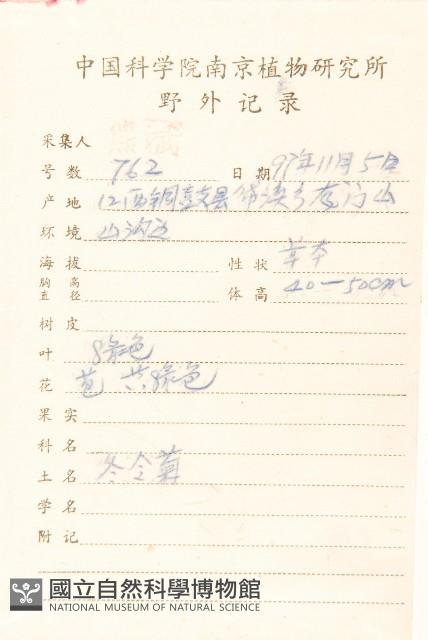 中国科学院南京植物研究所
野外记录
采集人 熊
号数 762 日期 97年11月5日
产地 江西铜鼓县 乡龙门山
环境 山沟边
海拔 性状 草本
胸高直径 体高 40—50cm
树皮
叶 绿色
花 苞 绿色
果实
科名
土名 冬令菊
学名
附记
國立自然科學博物館
NATIONAL MUSEUM OF NATURAL SCIENCE